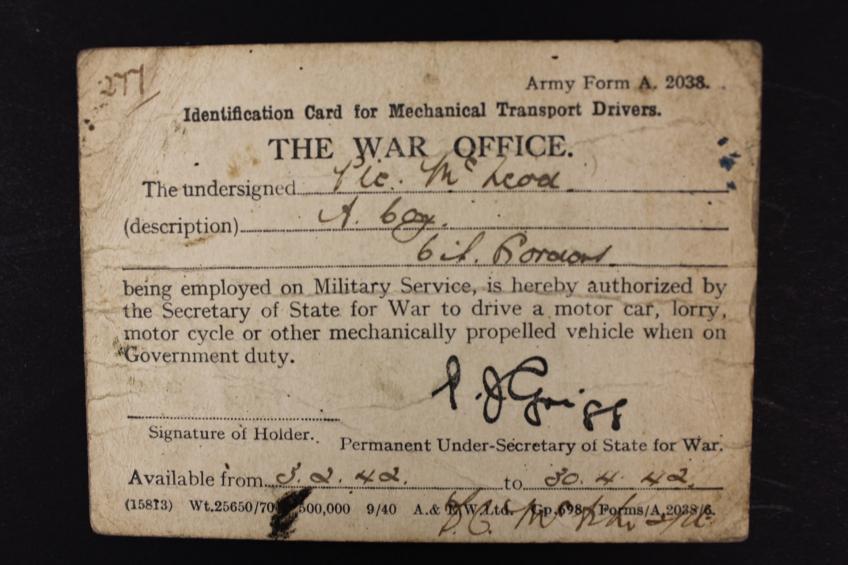 277
Army Form A. 2038.
Identification Card for Mechanical Transport Drivers.
THE WAR OFFICE.
The undersigned Pte. McLeod
(description) A. Coy.
being employed on Military Service, is hereby authorized by
the Secretary of State for War to drive a motor car, lorry,
motor cycle or other mechanically propelled vehicle when on
Government duty.
P. J. Grigg
Signature of Holder.
Permanent Under-Secretary of State for War.
Available from 3.2.42. to 30.4.42.
(15813) Wt.25650/70 500,000 9/40 A.& E.W.Ltd. Gp.698 Forms/A,2038/6.